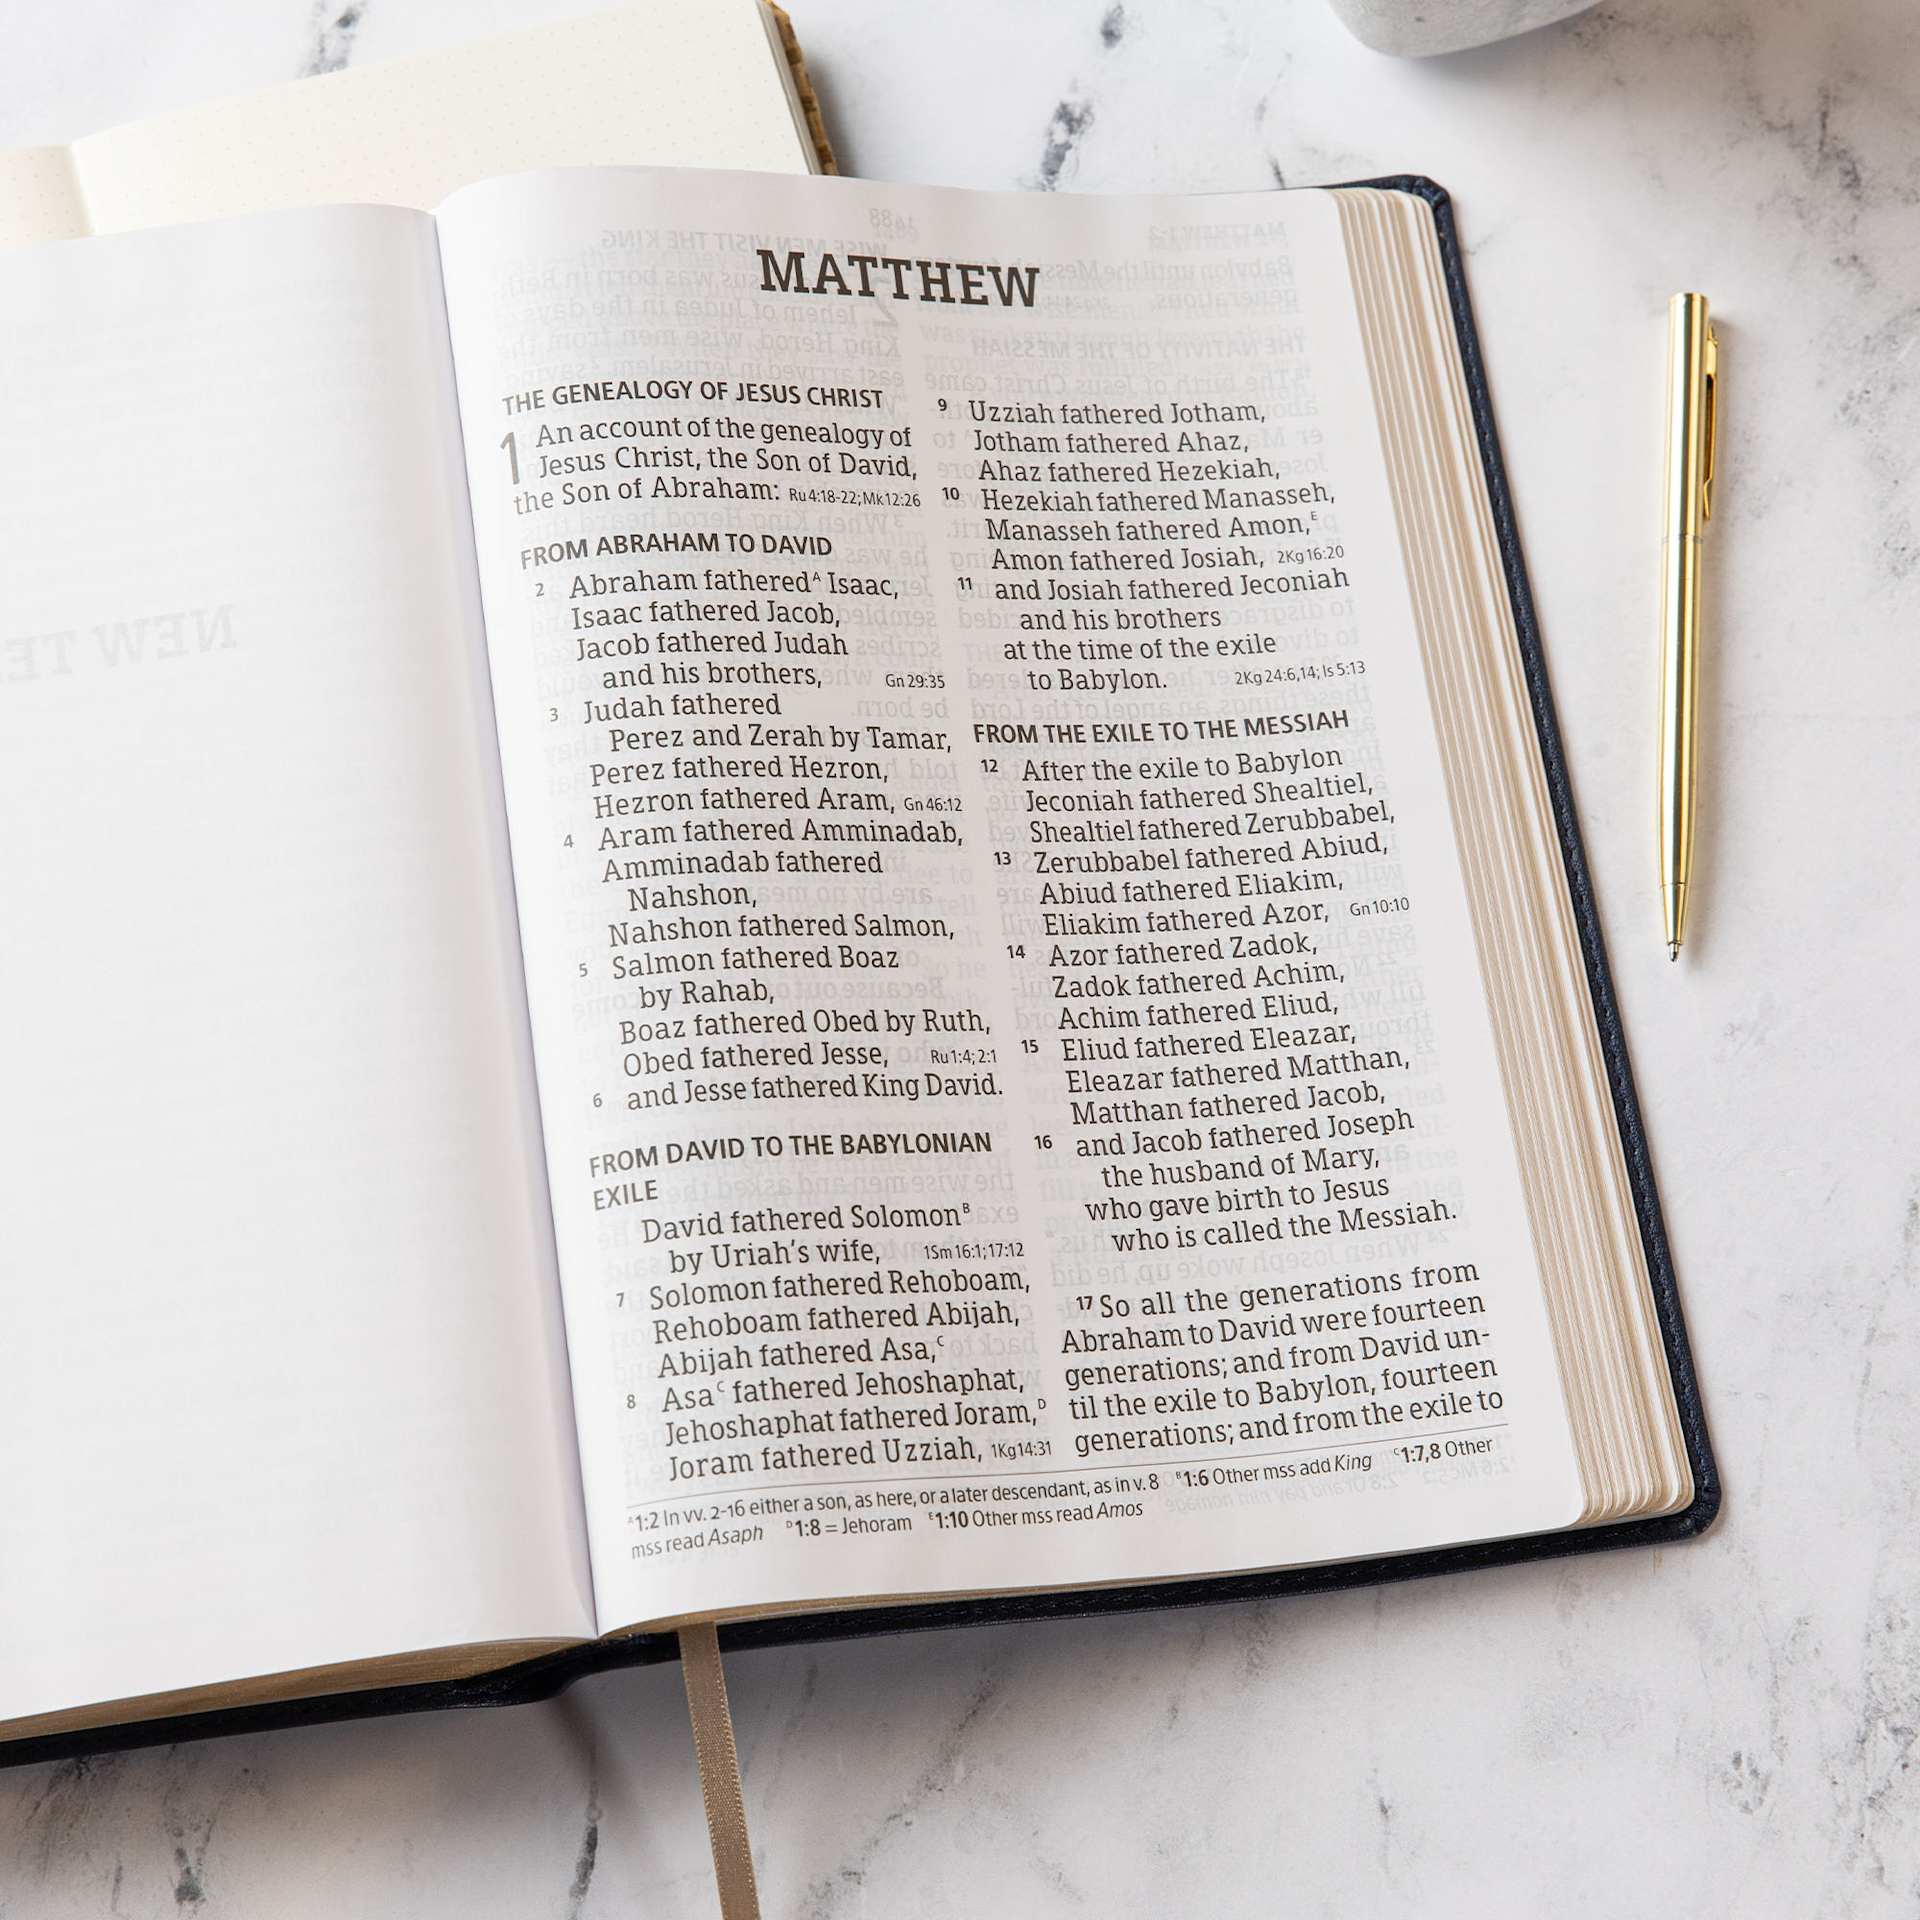 MATTHEW
THE GENEALOGY OF JESUS CHRIST
1 An account of the genealogy of
Jesus Christ, the Son of David,
the Son of Abraham: Ru 4:18-22; Mk 12:26
FROM ABRAHAM TO DAVID
2 Abraham fathered^A Isaac,
Isaac fathered Jacob,
Jacob fathered Judah
and his brothers, Gn 29:35
3 Judah fathered
Perez and Zerah by Tamar,
Perez fathered Hezron,
Hezron fathered Aram, Gn 46:12
4 Aram fathered Amminadab,
Amminadab fathered
Nahshon,
Nahshon fathered Salmon,
5 Salmon fathered Boaz
by Rahab,
Boaz fathered Obed by Ruth,
Obed fathered Jesse, Ru 1:4; 2:1
6 and Jesse fathered King David.
FROM DAVID TO THE BABYLONIAN
EXILE
David fathered Solomon^B
by Uriah's wife, 1Sm 16:1; 17:12
7 Solomon fathered Rehoboam,
Rehoboam fathered Abijah,
Abijah fathered Asa,^C
8 Asa^C fathered Jehoshaphat,
Jehoshaphat fathered Joram,^D
Joram fathered Uzziah, 1Kg 14:31
9 Uzziah fathered Jotham,
Jotham fathered Ahaz,
Ahaz fathered Hezekiah,
10 Hezekiah fathered Manasseh,
Manasseh fathered Amon,^E
Amon fathered Josiah, 2Kg 16:20
11 and Josiah fathered Jeconiah
and his brothers
at the time of the exile
to Babylon. 2Kg 24:6,14; Is 5:13
FROM THE EXILE TO THE MESSIAH
12 After the exile to Babylon
Jeconiah fathered Shealtiel,
Shealtiel fathered Zerubbabel,
13 Zerubbabel fathered Abiud,
Abiud fathered Eliakim,
Eliakim fathered Azor, Gn 10:10
14 Azor fathered Zadok,
Zadok fathered Achim,
Achim fathered Eliud,
15 Eliud fathered Eleazar,
Eleazar fathered Matthan,
Matthan fathered Jacob,
16 and Jacob fathered Joseph
the husband of Mary,
who gave birth to Jesus
who is called the Messiah.
17 So all the generations from
Abraham to David were fourteen
generations; and from David un-
til the exile to Babylon, fourteen
generations; and from the exile to
^A 1:2 In vv. 2-16 either a son, as here, or a later descendant, as in v. 8 ^B 1:6 Other mss add King ^C 1:7,8 Other
mss read Asaph ^D 1:8 = Jehoram ^E 1:10 Other mss read Amos